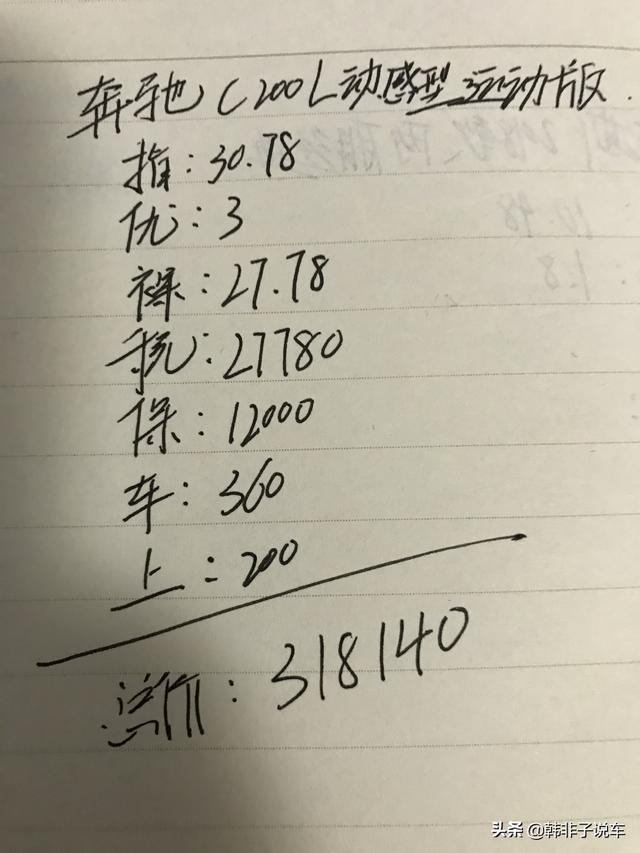 奔驰C200L动感型运动版
指:30.78
优:3
裸:27.78
税:27780
保:12000
车:360
上:200
总价:318140
头条 @韩非子说车